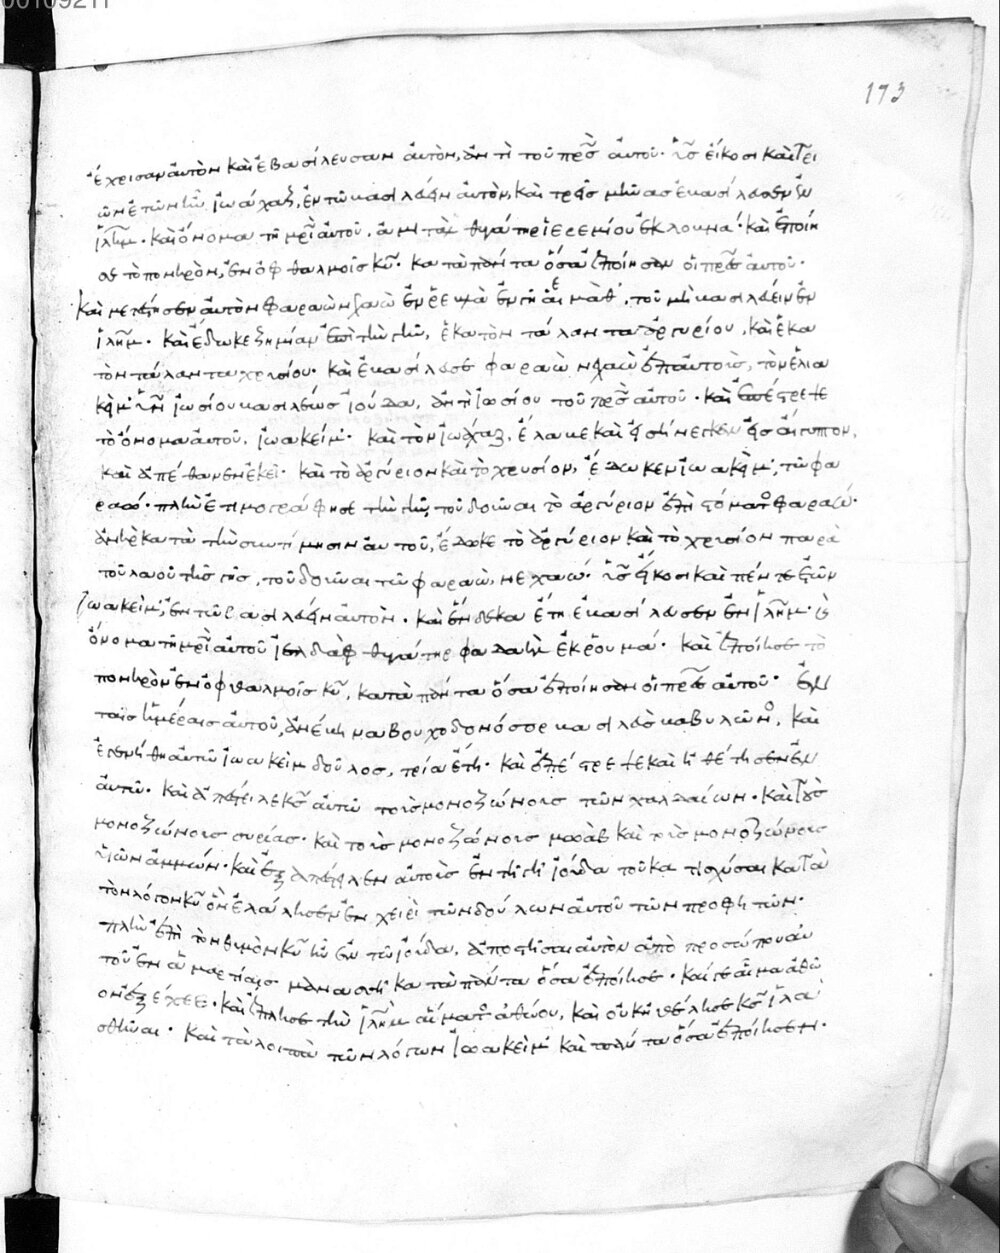 00109211
173
ἔχρισαν αὐτὸν καὶ ἐβασίλευσαν αὐτὸν, ἀντὶ τοῦ πρς αὐτοῦ. υἱὸς εἴκοσι καὶ τρι
ῶν ἐτῶν ἦν ἰωάχαζ, ἐν τῶ βασιλεύειν αὐτὸν, καὶ τρεῖς μῆνας ἐβασίλευσεν ἐν
ἱλημ. καὶ ὄνομα τῆ μρὶ αὐτοῦ, ἀμιτὰλ θυγάτηρ ἱερεμίου ἐκ λομνά. καὶ ἐποίη
σε τὸ πονηρὸν, ἐν ὀφθαλμοῖς κυ. κατὰ πάντα ὅσα ἐποίησαν οἱ πρες αὐτοῦ.
καὶ μετέστησεν αὐτὸν φαραὼ νεχαὼ ἐν ῥεβλὰ ἐν γῆ αἰμὰθ, τοῦ μὴ βασιλεύειν ἐν
ἱλημ. καὶ ἔδωκε ζημίαν ἐπὶ τὴν γῆν, ἑκατὸν τάλαντα ἀργυρίου, καὶ ἑκα
τὸν τάλαντα χρυσίου. καὶ ἐβασίλευσε φαραὼ νεχαὼ ἐπ' αὐτοὺς, τὸν ἐλια
κεὶμ υἱὸν ἰωσίου βασιλέως ἰούδα, ἀντὶ ἰωσίου τοῦ πρς αὐτοῦ. καὶ ἐπέστρεψε
τὸ ὄνομα αὐτοῦ, ἰωακείμ. καὶ τὸν ἰωάχαζ, ἔλαβε καὶ εἰσήνεγκεν εἰς αἴγυπτον,
καὶ ἀπέθανεν ἐκεῖ. καὶ τὸ ἀργύριον καὶ τὸ χρυσίον, ἔδωκεν ἰωακεὶμ, τῶ φα
ραώ. πλὴν ἐτιμογράφησε τὴν γῆν, τοῦ δοῦναι τὸ ἀργύριον ἐπὶ στόματος φαραώ.
ἀνὴρ κατὰ τὴν συντίμησιν αὐτοῦ, ἔδωκε τὸ ἀργύριον καὶ τὸ χρυσίον παρὰ
τοῦ λαοῦ τῆς γῆς, τοῦ δοῦναι τῶ φαραὼ νεχαώ. υἱὸς εἴκοσι καὶ πέντε ἐτῶν
ἰωακεὶμ, ἐν τῶ βασιλεύειν αὐτὸν. καὶ ἕνδεκα ἔτη ἐβασίλευσεν ἐν ἱλημ. καὶ
ὄνομα τῆ μρὶ αὐτοῦ ἰελδὰφ θυγάτηρ φαδαὴλ ἐκ ῥουμά. καὶ ἐποίησε τὸ
πονηρὸν ἐν ὀφθαλμοῖς κυ, κατὰ πάντα ὅσα ἐποίησαν οἱ πρες αὐτοῦ. ἐν
ταῖς ἡμέραις αὐτοῦ, ἀνέβη ναβουχοδονόσορ βασιλεὺς βαβυλῶνος, καὶ
ἐγενήθη αὐτῶ ἰωακεὶμ δοῦλος, τρία ἔτη. καὶ ἐπέστρεψε καὶ ἠθέτησεν ἐν
αὐτῶ. καὶ ἀπέστειλε κς αὐτῶ τοὺς μονοζώνους τῶν χαλδαίων. καὶ τοὺς
μονοζώνους συρίας. καὶ τοὺς μονοζώνους μωὰβ καὶ τοὺς μονοζώνους
υἱῶν ἀμμών. καὶ ἐξαπέστειλεν αὐτοὺς ἐν τῆ γῆ ἰούδα τοῦ κατισχύσαι κατὰ
τὸν λόγον κυ ὃν ἐλάλησεν ἐν χειρὶ τῶν δούλων αὐτοῦ τῶν προφητῶν.
πλὴν ἐπὶ τὸν θυμὸν κυ ἦν ἐν τῶ ἰούδα, ἀποστῆσαι αὐτὸν ἀπὸ προσώπου αὐ
τοῦ ἐν ἁμαρτίαις μανασσῆ κατὰ πάντα ὅσα ἐποίησε. καί γε αἷμα ἀθῶ
ον ἐξέχεε. καὶ ἔπλησε τὴν ἱλημ αἵματος ἀθώου, καὶ οὐκ ἠθέλησε κς ἱλα
σθῆναι. καὶ τὰ λοιπὰ τῶν λόγων ἰωακεὶμ καὶ πάντα ὅσα ἐποίησεν.